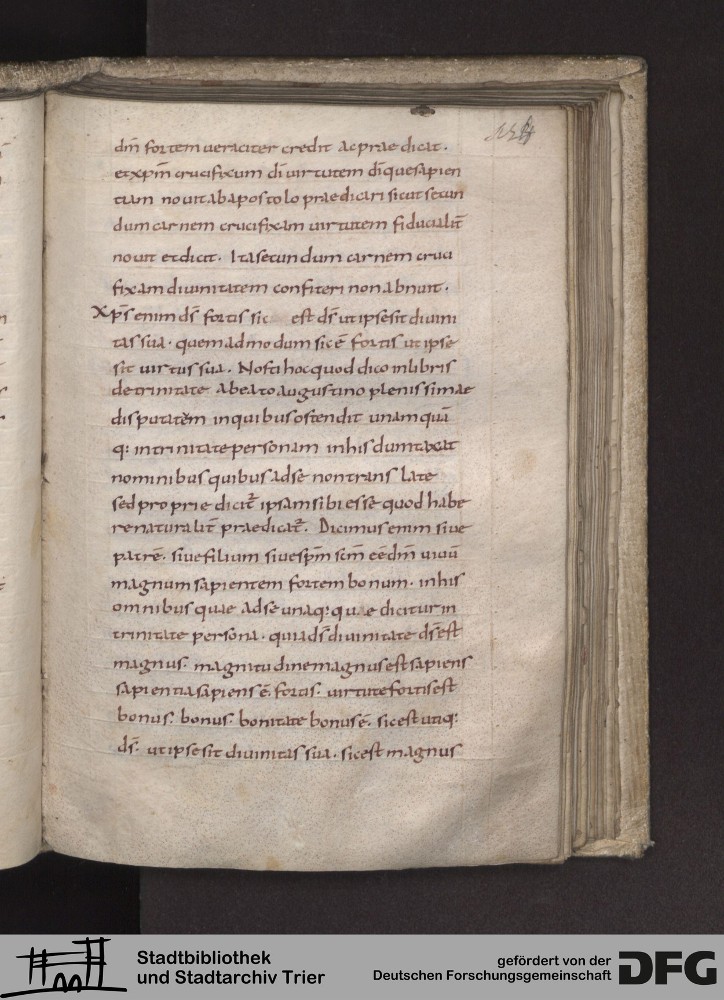 dm̄ fortem ueraciter credit ac praedicat.
et xpm̄ crucifixum dī uirtutem dīque sapien
tiam nouit ab apostolo praedicari sicut secun
dum carnem crucifixam uirtutem fiducialit̄
nouit et dicit. Ita secundum carnem cruci
fixam diuinitatem confiteri non abnuit.
Xps̄ enim ds̄ fortis sic est ds̄ ut ipse sit diuini
tas sua. quemadmodum sic ē fortis ut ipse
sit uirtus sua. Nosti hoc quod dico in libris
de trinitate a beato augustino plenissimae
disputatēm in quibus ostendit unam quā
q: in trinitate personam in his dumtaxat
nominibus quibus ad se non translate
sed proprie dicit̄ ipsam sibi esse quod habe
re naturalit̄ praedicat̄. Dicimus enim siue
patrē. siue filium siue spm̄ scm̄ eē dm̄ uiuū
magnum sapientem fortem bonum. in his
omnibus quae ad se unaq:quae dicitur in
trinitate persona. quia ds̄ diuinitate ds̄ est
magnus. magnitudine magnus est sapiens
sapientia sapiens ē. fortis. uirtute fortis est
bonus. bonus. bonitate bonus ē. sic est utiq:
ds̄. ut ipse sit diuinitas sua. sic est magnus
Stadtbibliothek
und Stadtarchiv Trier
gefördert von der
Deutschen Forschungsgemeinschaft
DFG